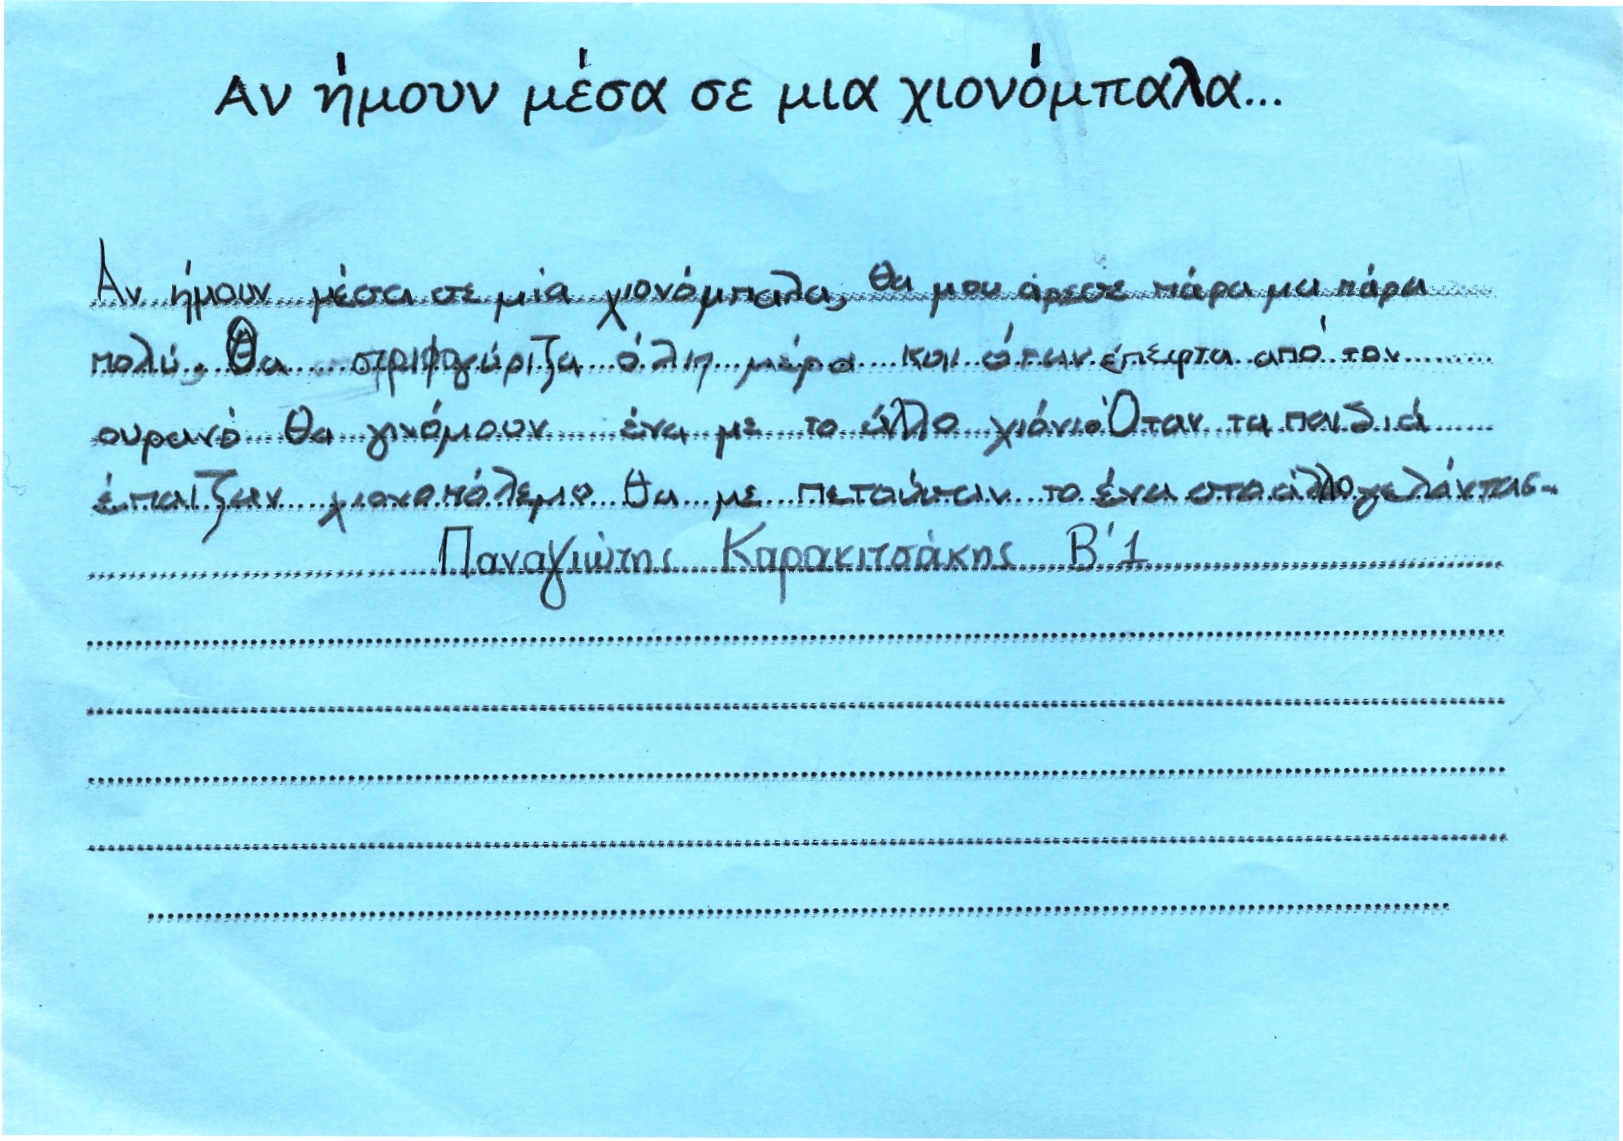 Αν ήμουν μέσα σε μια χιονόμπαλα...
Αν ήμουν μέσα σε μία χιονόμπαλα, θα μου άρεσε πάρα μα πάρα
πολύ. Θα στριφογύριζα όλη μέρα και όταν έπεφτα από τον
ουρανό θα γινόμουν ένα με το άλλο χιόνι. Όταν τα παιδιά
έπαιζαν χιονοπόλεμο θα με πετούσαν το ένα στο άλλο γελώντας.
Παναγιώτης Καρακιτσάκης Β'1